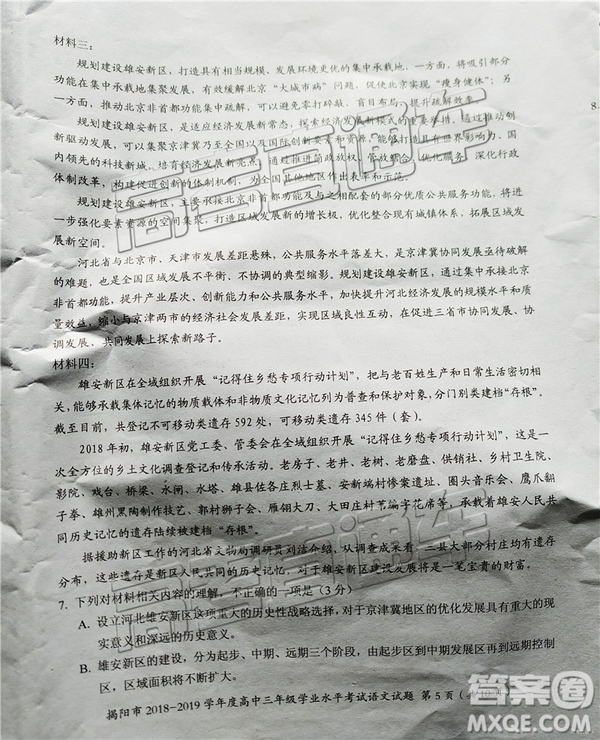 材料三：
规划建设雄安新区，打造具有相当规模、发展环境更优的集中承载地，一方面，将吸引部分
功能在集中承载地集聚发展，有效缓解北京“大城市病”问题，促使北京实现“瘦身健体”；另
一方面，推动北京非首都功能集中疏解，可以避免零打碎敲、盲目布局，提升疏解效率。
规划建设雄安新区，是适应经济发展新常态，探索经济发展新模式的重要举措，通过实施创
新驱动发展，可以集聚京津冀乃至全国以及国际创新要素和资源，打造具有世界影响力、国
内领先的科技新城，培育经济发展新亮点，通过推进简政放权、管放结合、优化服务，深化行政
体制改革，构建促进创新的体制机制，为全国其他地区作出表率和示范。
规划建设雄安新区，主要承接北京非首都功能及与之相配套的部分优质公共服务功能，将进
一步强化要素资源的空间集聚，打造区域发展新的增长极，优化整合现有城镇体系，拓展区域发
展新空间。
河北省与北京市、天津市发展差距悬殊，公共服务水平落差大，是京津冀协同发展亟待破解
的难题，也是全国区域发展不平衡、不协调的典型缩影。规划建设雄安新区，通过集中承接北京
非首都功能，提升产业层次、创新能力和公共服务水平，加快提升河北经济发展的规模水平和质
量效益，缩小与京津两市的经济社会发展差距，实现区域良性互动，在促进三省市协同发展、协
调发展、共同发展上探索新路子。
材料四：
雄安新区在全域组织开展“记得住乡愁专项行动计划”，把与老百姓生产和日常生活密切相
关，能够承载集体记忆的物质载体和非物质文化记忆列为普查和保护对象，分门别类建档“存根”。
截至目前，共登记不可移动类遗存 592 处，可移动类遗存 345 件（套）。
2018 年初，雄安新区党工委、管委会在全域组织开展“记得住乡愁专项行动计划”，这是一
次全方位的乡土文化调查登记和传承活动。老房子、老井、老树、老磨盘、供销社、乡村卫生院、
影院、戏台、桥梁、水闸、水塔、雄县佐各庄烈士墓、安新端村惨案遗址、圈头音乐会、鹰爪翻
子拳、雄州黑陶制作技艺、郭村狮子会、雁翎大刀、大田庄村苇编字花席等，承载着雄安人民共
同历史记忆的遗存陆续被建档“存根”。
据援助新区工作的河北省文物局调研员刘洁介绍，从调查成果来看，三县大部分村庄均有遗存
分布，这些遗存是新区人民共同的历史记忆，对于雄安新区发展将是一笔宝贵的财富。
7. 下列对材料相关内容的理解，不正确的一项是（3 分）
A. 设立河北雄安新区这项重大的历史性战略选择，对于京津冀地区的优化发展具有重大的现
实意义和深远的历史意义。
B. 雄安新区的建设，分为起步、中期、远期三个阶段，由起步区到中期发展区再到远期控制
区，区域面积将不断扩大。
揭阳市 2018-2019 学年度高中三年级学业水平考试语文试题 第 5 页（
8.
高考直通车
高考直通车
高考直通车
答案圈
MXQE.COM